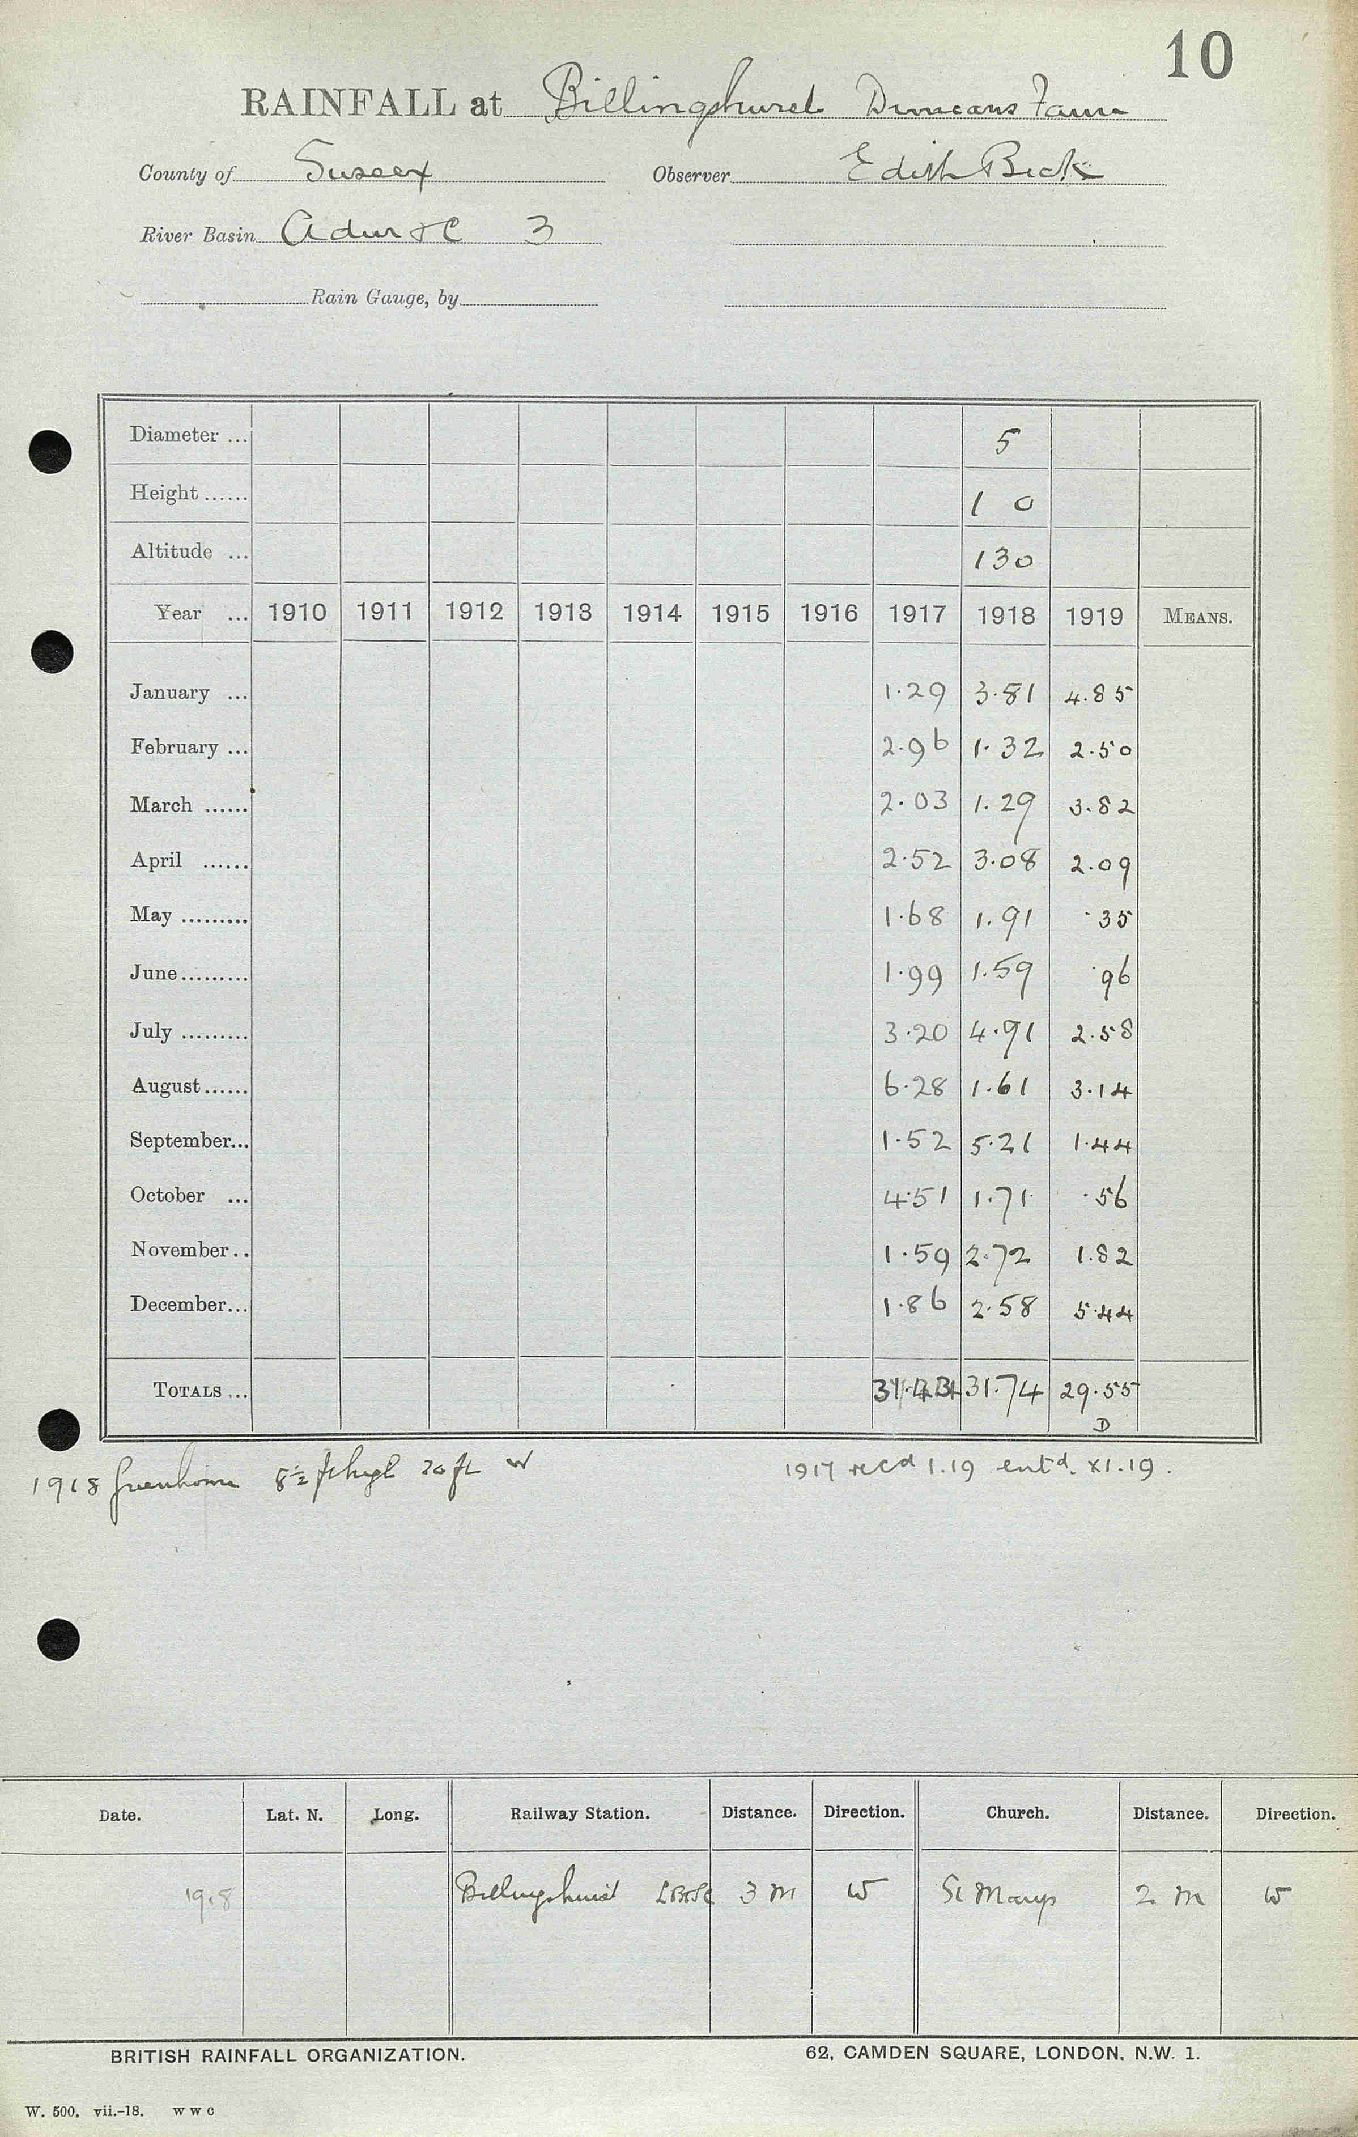 10
RAINFALL at Billingshurst Duncans Farm
County of Sussex Observer Edith Beck
River Basin Adur &c 3
Rain Gauge, by
Diameter ... 5
Height ...... 1 0
Altitude ... 130
Year ... 1910 1911 1912 1913 1914 1915 1916 1917 1918 1919 MEANS.
January ... 1.29 3.81 4.85
February ... 2.96 1.32 2.50
March ...... 2.03 1.29 3.82
April ...... 2.52 3.08 2.09
May ......... 1.68 1.91 .35
June ......... 1.99 1.59 .96
July ......... 3.20 4.91 2.58
August ...... 6.28 1.61 3.14
September... 1.52 5.21 1.44
October ... 4.51 1.71 .56
November .. 1.59 2.72 1.82
December... 1.86 2.58 5.44
TOTALS ... 31.74 29.55
D
1918 Greenhouse 8½ ft high 20 ft W 1917 recd 1.19 entd. XI.19.
Date. Lat. N. Long. Railway Station. Distance. Direction. Church. Distance. Direction.
1918 Billingshurst LB&SC 3 m W St Marys 2 m W
BRITISH RAINFALL ORGANIZATION. 62, CAMDEN SQUARE, LONDON, N.W. 1.
W. 500. vii.-18. W W C